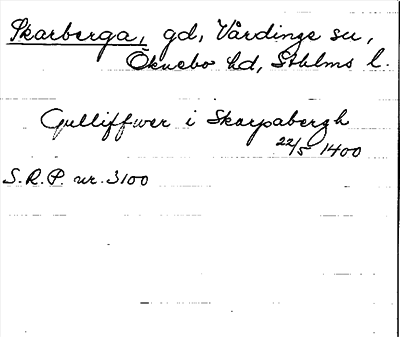 Skarberga, gd, Vårdinge sn,
Öknebo hd, Sthlms l.
Gulliffwer i Skarpabergh
22/5 1400
S.R.P. nr. 3100